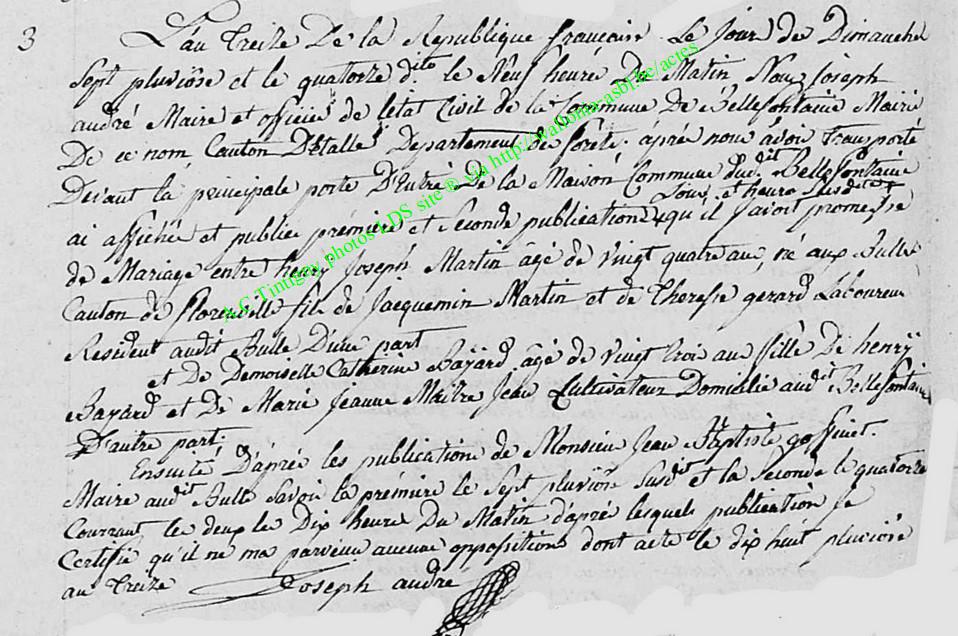 3
L'an treize De la Republique francaise Le Jour de Dimanche
Sept pluviôse et le quatorze dito le Neuf heure Du Matin Nous Joseph
andré Maire et officier de letat Civil de la Commune De Bellefontaine Mairie
De ce nom Canton D'Etalle Departement de forêts. aprés nous avoir transporté
Devant la principale porte D'Entré De la Maison Commune dudit Bellefontaine
Jour et heure susdits
ai affiché et publié prémiere et seconde publication qu'il y avoit promesse
de Mariage entre henry Joseph Martin âgé de vingt quatre ans, né aux Bulle
Canton de florenville fils de Jacquemin Martin et de Therese gerard Laboureur
Resident audit Bulle D'une part
et De Demoiselle Catherine Bayard âgé de vingt trois ans fille De henry
Bayard et De Marie Jeanne Maître Jean Cultivateur Domicilié audit Bellefontaine
D'autre part.
Ensuite D'aprés les publication de Monsieur Jean Baptiste goffinet.
Maire audit Bulle Savoir la prémiere le Sept pluviôse Susdit et la Seconde le quatorze
Courrant les deux le Dix heure Du Matin d'aprés lesquels publication je
Certifie qu'il ne ma parvenu aucune opposition dont acte le dix huit pluviôse
an treize Joseph andré
A.C.Tintigny photos LDS site ® via http://wallonia.asbl.be/actes